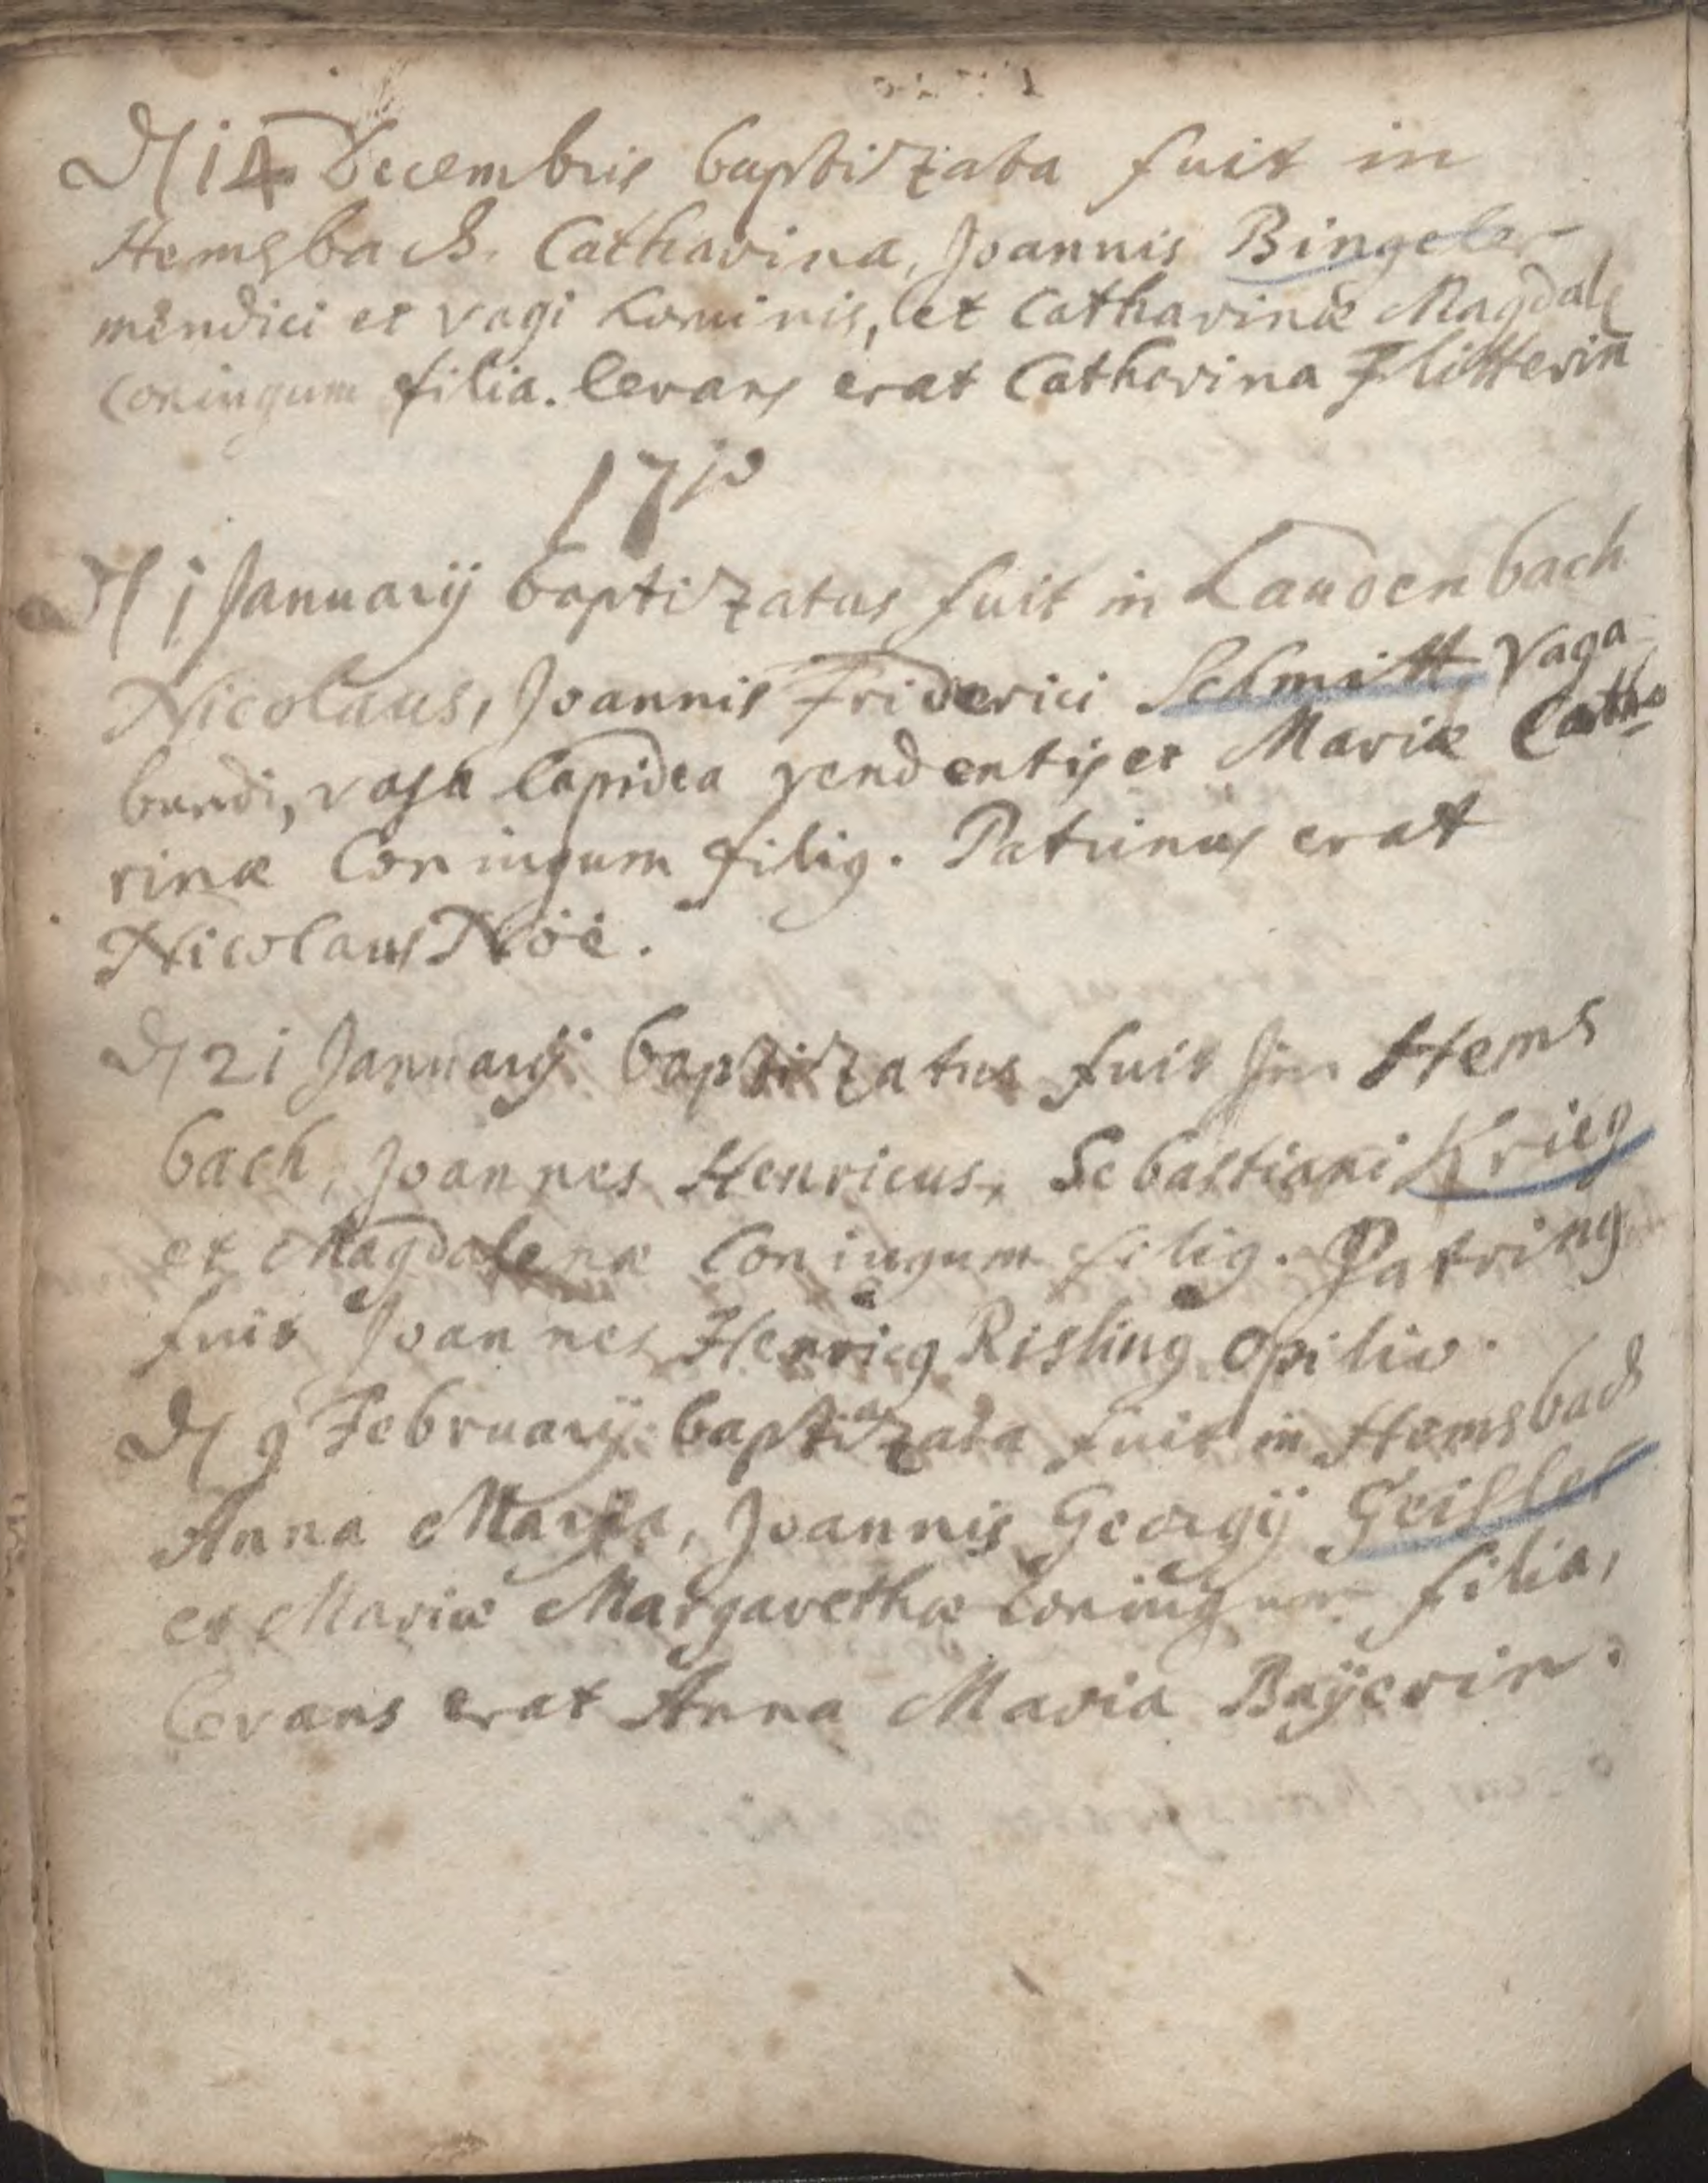 D 14 Decembris baptizata fuit in
Hemsbach. Catharina, Joannis Bingeler
mendici et vagi hominis, et Catharinæ Magdale
coniugum filia. levans erat Catharina Flitterin
1710
D 1 Januarij baptizatus fuit in Laudenbach
Nicolaus, Joannis Friderici Schmitt vaga
bundi, vasa lapidea vendentis et Mariæ Catha
rinæ Coniugum filig. Patrinus erat
Nicolaus Noë.
D 21 Januarij baptizatus fuit Jn Hems
bach, Joannes Henricus, Sebastiani Krieg
et Magdalenæ Coniugum filig. Patring
fuit Joannes Henricg Risling opilio.
D 9 Februarij baptizata fuit in Hemsbach
Anna Maria, Joannis Georgij Geisler
et Mariæ Margarethæ Coniugum filia,
levans erat Anna Maria Bayerin.